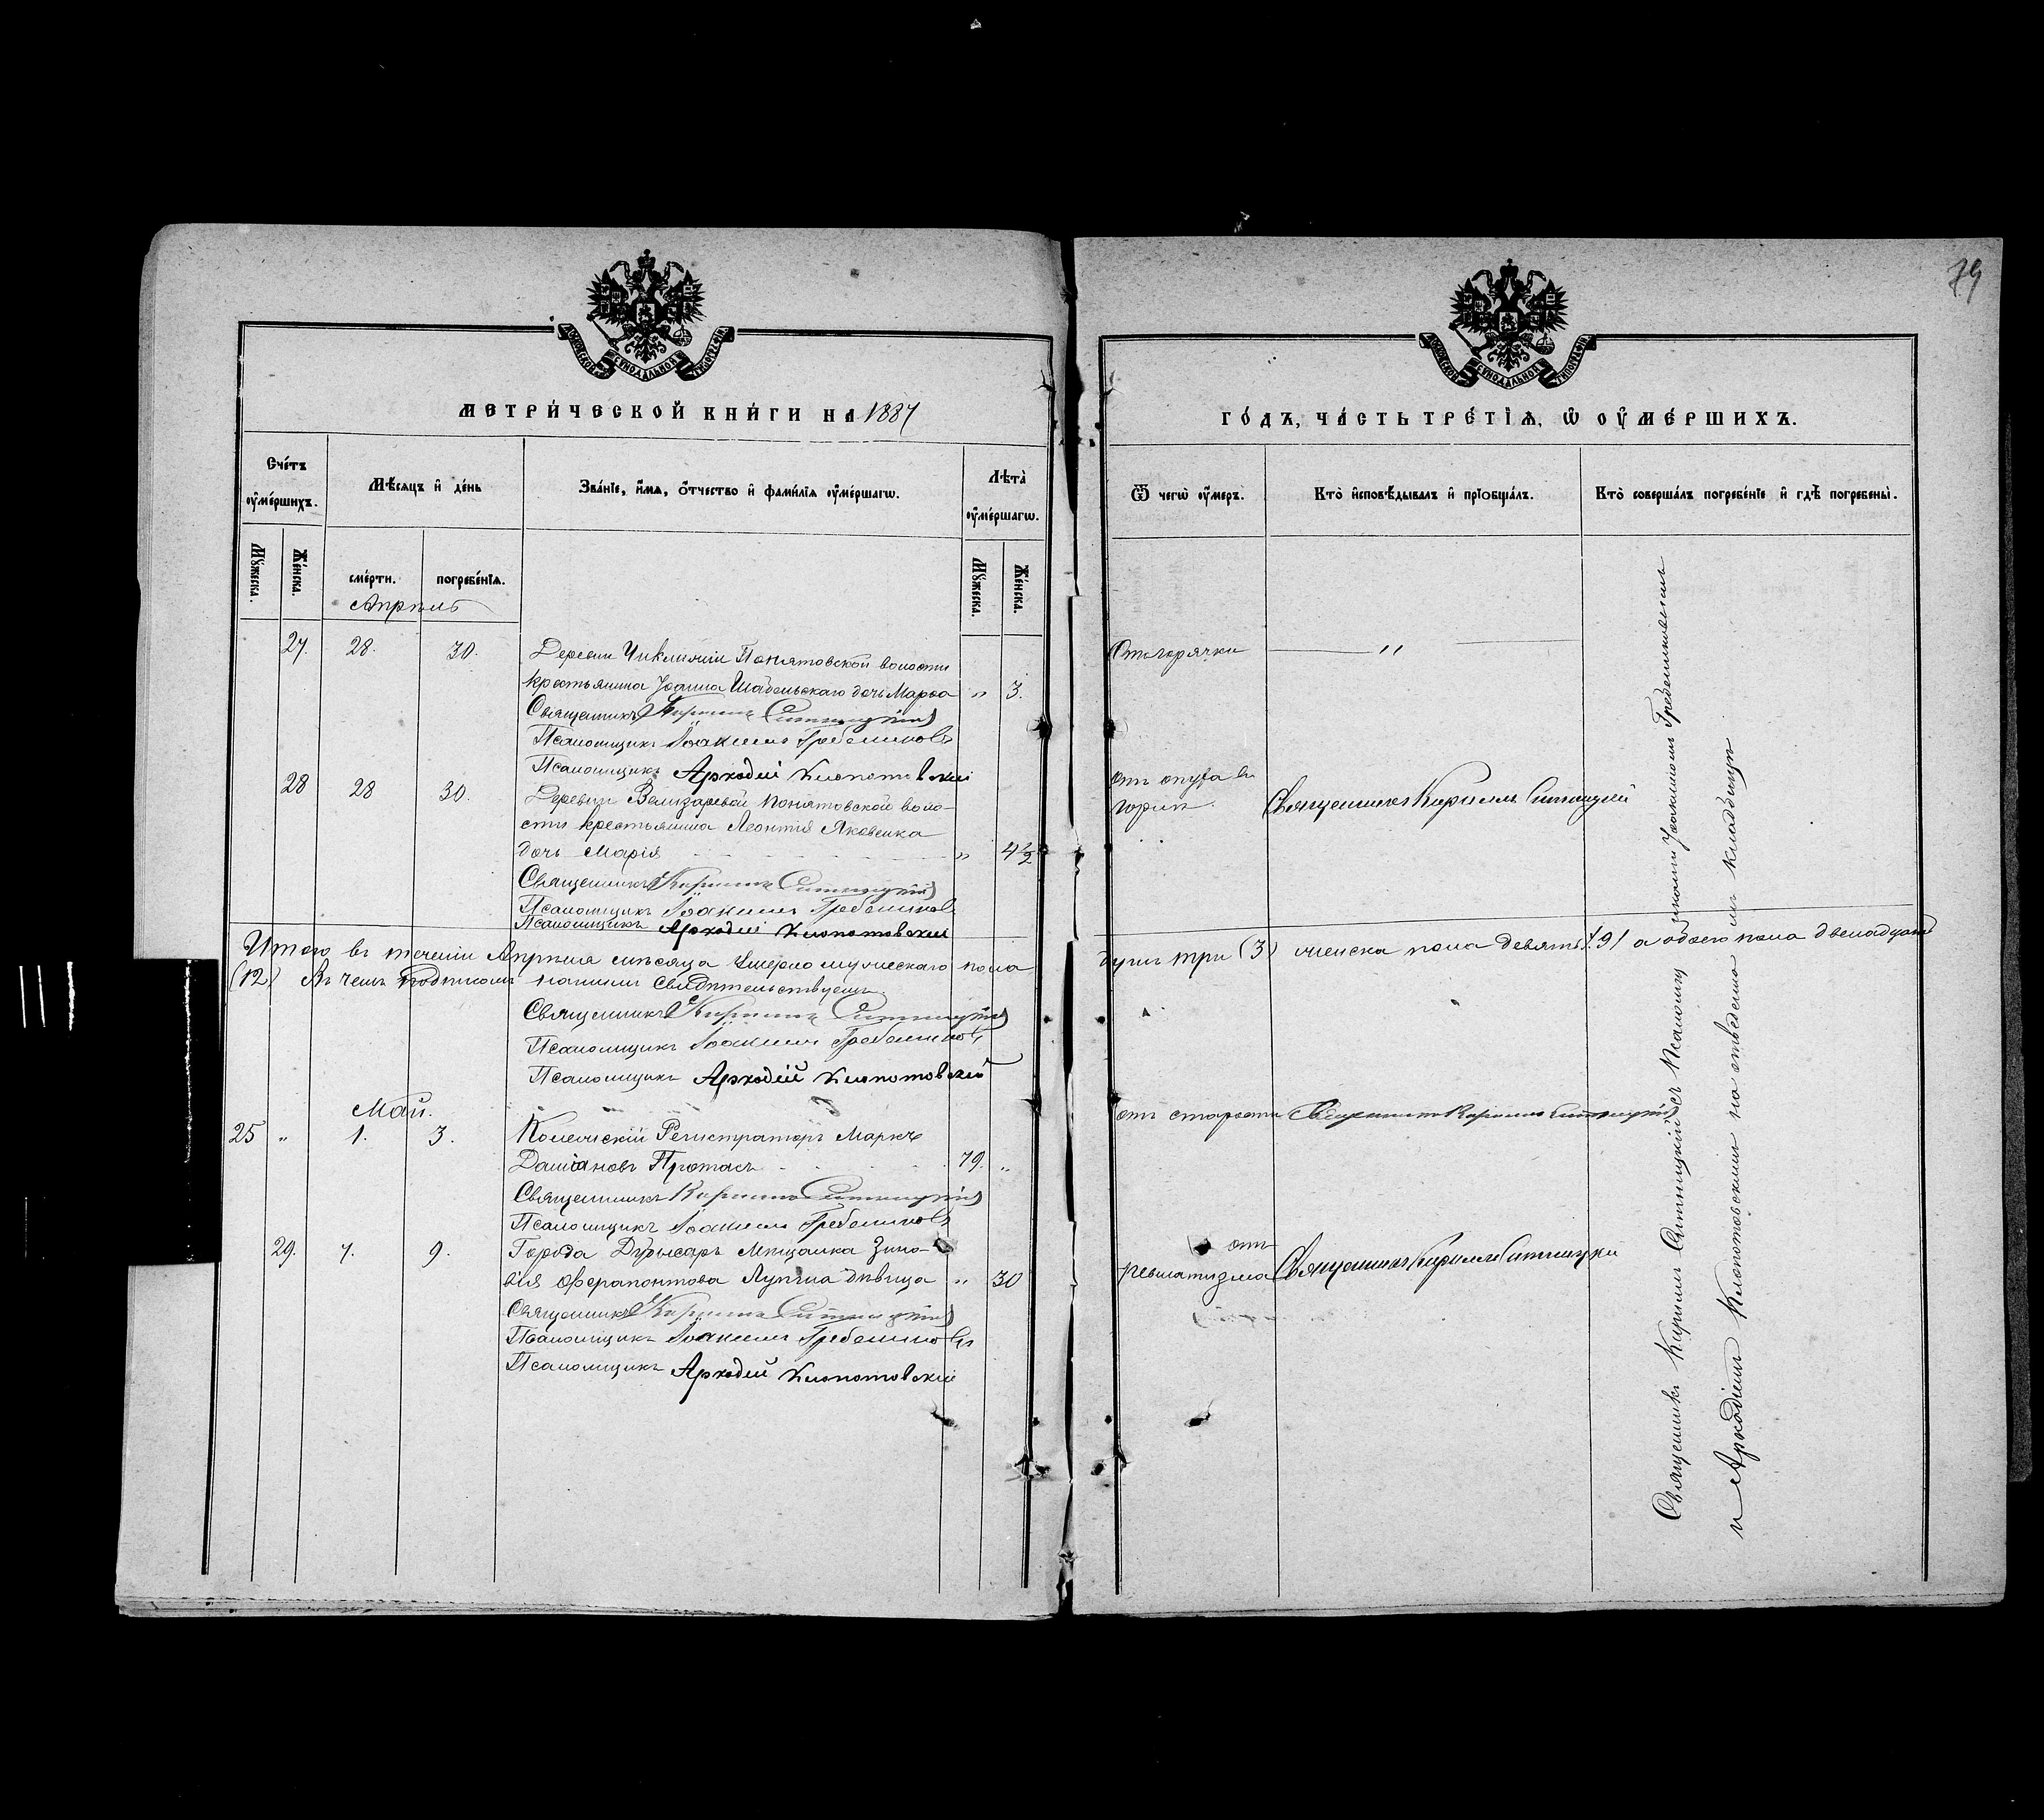 МЕТРИЧЕСКОЙ КНИГИ НА 1887
Счетъ ѹмершихъ.
Мѣсяцъ и день
Званіе, имя, отчество и фамилія ѹмершагѡ.
Лѣта ѹмершагѡ.
Мѹжеска.
Женска.
смерти.
погребенія.
Мѹжеска.
Женска.
Апрѣль
27. 28. 30. Деревни Чиклинiи Понятовской волости
крестьянина Іоанна Шабельскаго дочь Марѳа " 3.
Священникъ Кириллъ Ситницкій
Псаломщикъ Іоакимъ Гребенниковъ
Псаломщикъ Аркадій Клопотовскій
28 28 30. Деревни Велизаровой Понятовской воло-
сти крестьянина Леонтія Яковенка
дочь Марія " 4½
Священникъ Кириллъ Ситницкій
Псаломщикъ Іоакимъ Гребенниковъ
Псаломщикъ Аркадій Клопотовскій
Итого въ теченіи Апрѣля мѣсяца умерло мужескаго пола
(12) Въ чемъ подписомъ нашимъ свидѣтельствуемъ.
Священникъ Кириллъ Ситницкій
Псаломщикъ Іоакимъ Гребенниковъ
Псаломщикъ Аркадій Клопотовскій
Май.
25 " 1. 3. Колежскій Регистраторъ Маркъ
Даміановъ Протасъ 79. "
Священникъ Кириллъ Ситницкій
Псаломщикъ Іоакимъ Гребенниковъ
29. 7. 9. Города Дубысаръ Мѣщанка Зино-
вія Ферапонтова Лупина дѣвица " 30
Священникъ Кириллъ Ситницкій
Псаломщикъ Іоакимъ Гребенниковъ
Псаломщикъ Аркадій Клопотовскій
79
ГОДЪ, ЧАСТЬ ТРЕТІЯ, Ѡ ОУМЕРШИХЪ.
Ѿ чегѡ ѹмеръ.
Кто исповѣдывалъ и пріобщалъ.
Кто совершалъ погребеніе и гдѣ погребены.
Отъ горячки "
отъ опуха въ
горлѣ. Священникъ Кириллъ Ситницкій
душъ три (3) женска пола девять (9) а обоего пола двенадцать
отъ старости Священникъ Кириллъ Ситницкій
отъ
ревматизма Священникъ Кириллъ Ситницкій
Священникъ Кириллъ Ситницкій съ Псаломщиками Іоакимомъ Гребенниковымъ
и Аркадіемъ Клопотовскимъ на отведенномъ кладбищѣ